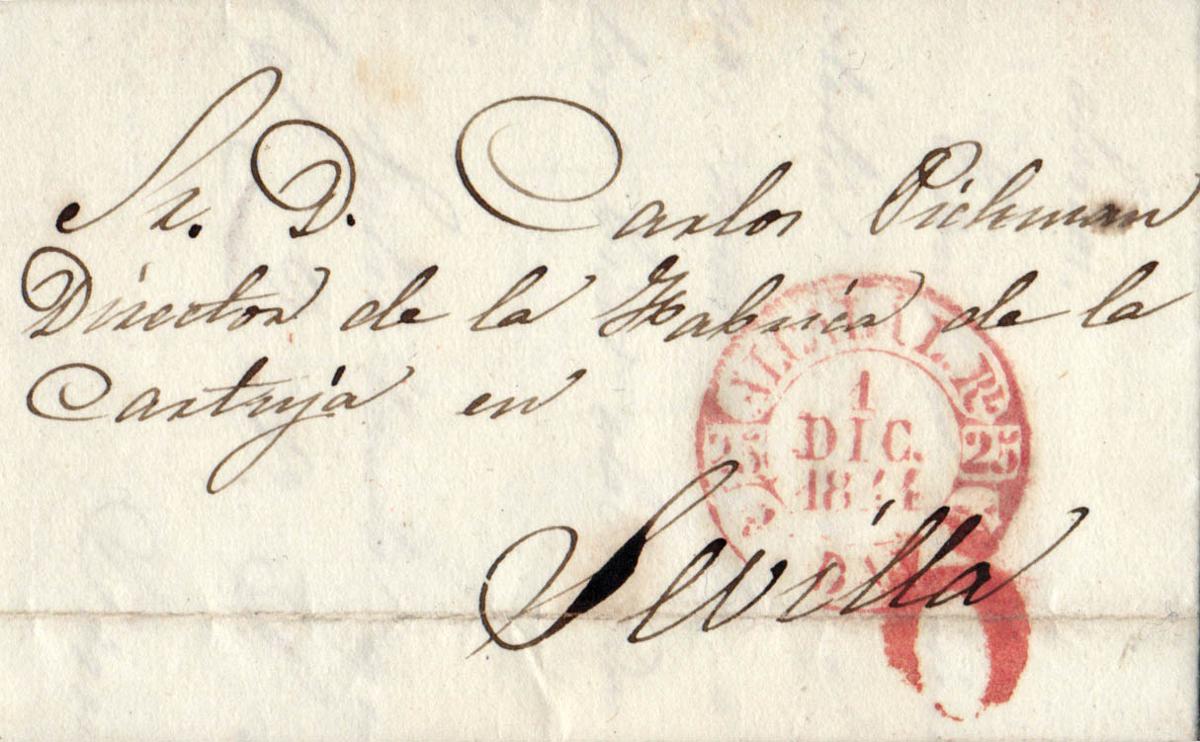 Sr. D. Carlos Pickman
Director de la Fabrica de la
Cartuja en
Sevilla
1
DIC.
25
25